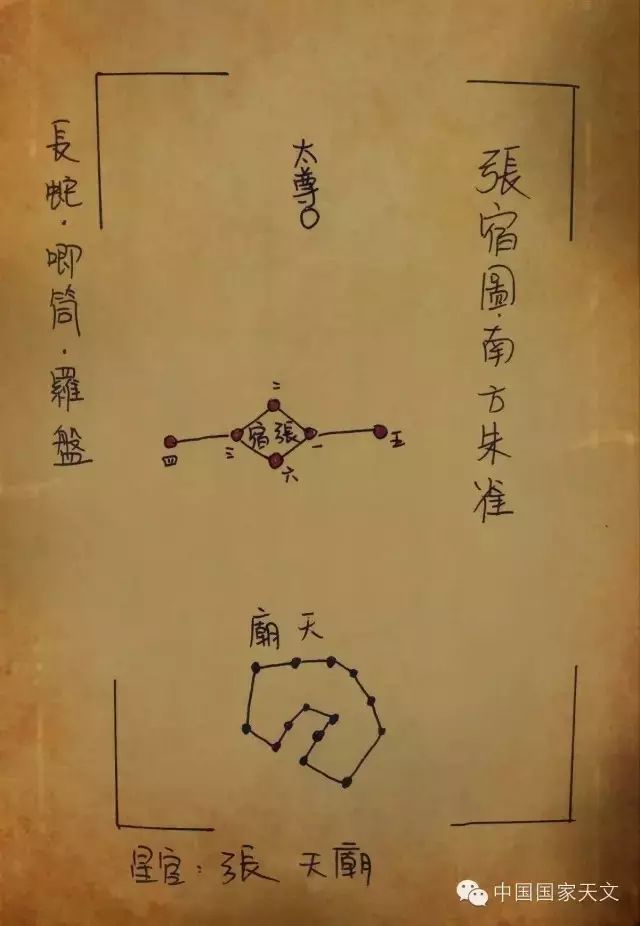 張宿圖·南方朱雀
太尊
長蛇·唧筒·羅盤
二
宿張
一
五
三
四
六
廟天
星官：張 天廟
中国国家天文